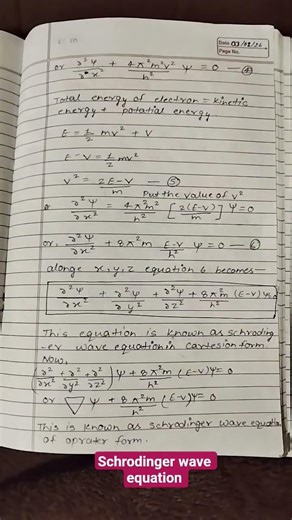 Date 03/12/24
Page No.
or ∂²ψ/∂²x + 4π²m²v²/h² ψ = 0 — ④
Total energy of electron = kinetic
energy + potatial energy
E = 1/2 mv² + V
E - V = 1/2 mv²
V² = 2E-V/m — ⑤
Put the value of v²
∂²ψ/∂x² = 4π²m²/h² [2(E-V)/m] ψ=0
or, ∂²ψ/∂x² + 8π²m E-V/h² ψ = 0 — ⑥
alonge x, y, z equation 6 becomes—
∂²ψ/∂x² + ∂²ψ/∂y² + ∂²ψ/∂z² + 8π²m/h² (E-V)ψ=0
This equation is known as schroding
-er wave equation in cartesion form.
Now,
(∂²/∂x² + ∂²/∂y² + ∂²/∂z²) ψ + 8π²m/h² (E-V)ψ=0
or ▽ ψ + 8π²m/h² (E-V)ψ=0
This is known as schrodinger wave equation
of oprater form.
Schrodinger wave
equation